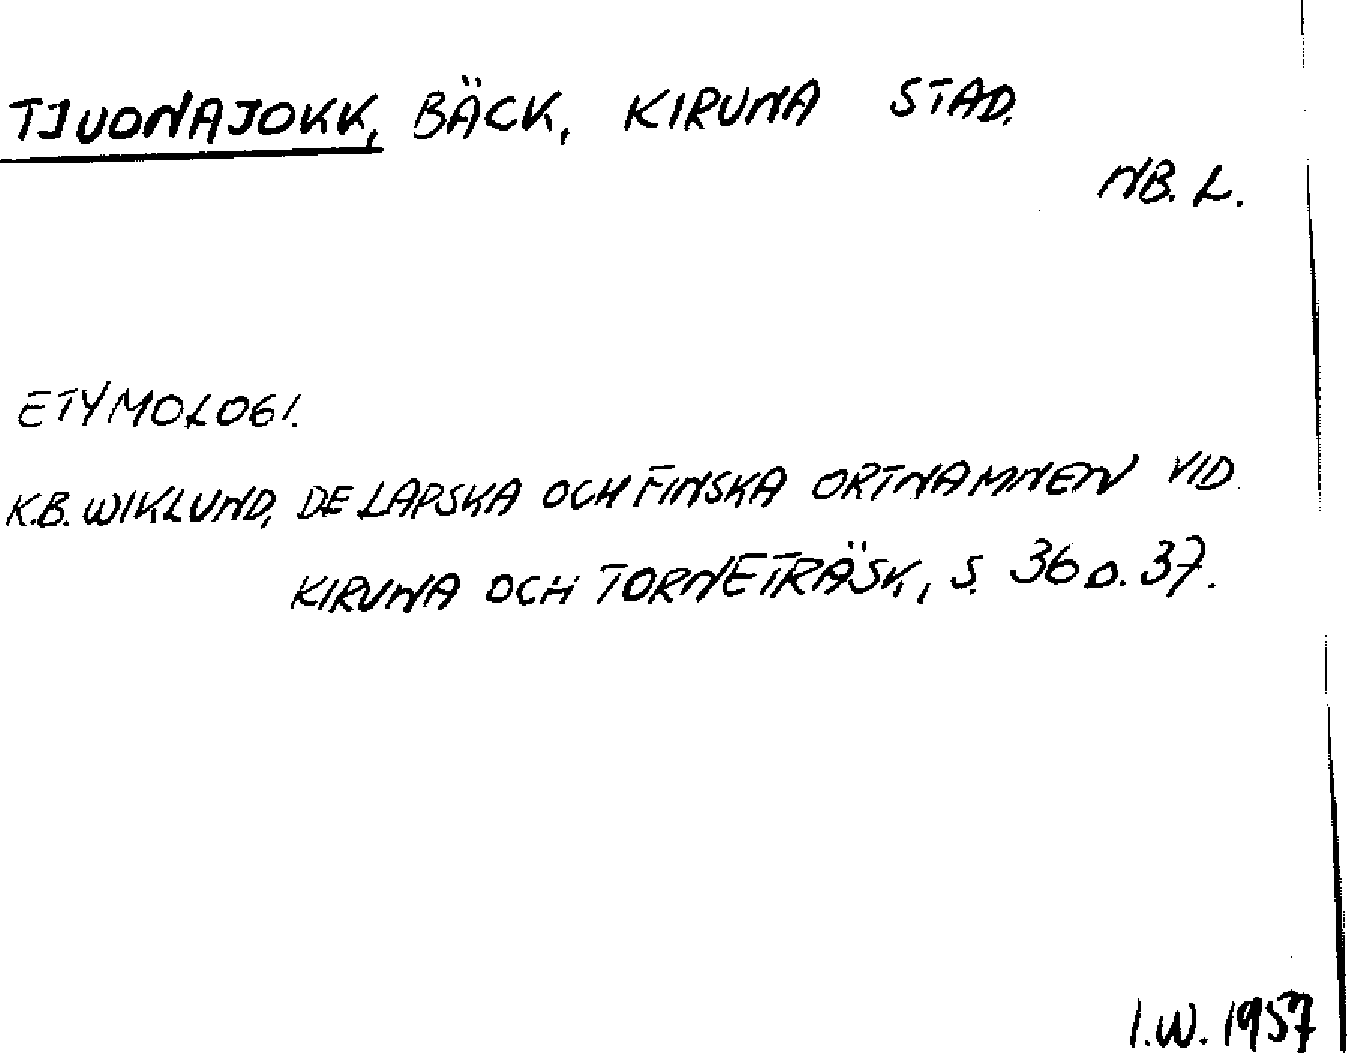 TJUONAJOKK, BÄCK, KIRUNA STAD.
NB. L.
ETYMOLOGI.
K.B. WIKLUND, DE LAPSKA OCH FINSKA ORTNAMNEN VID
KIRUNA OCH TORNETRÄSK, S. 36 O. 37.
I.W. 1957